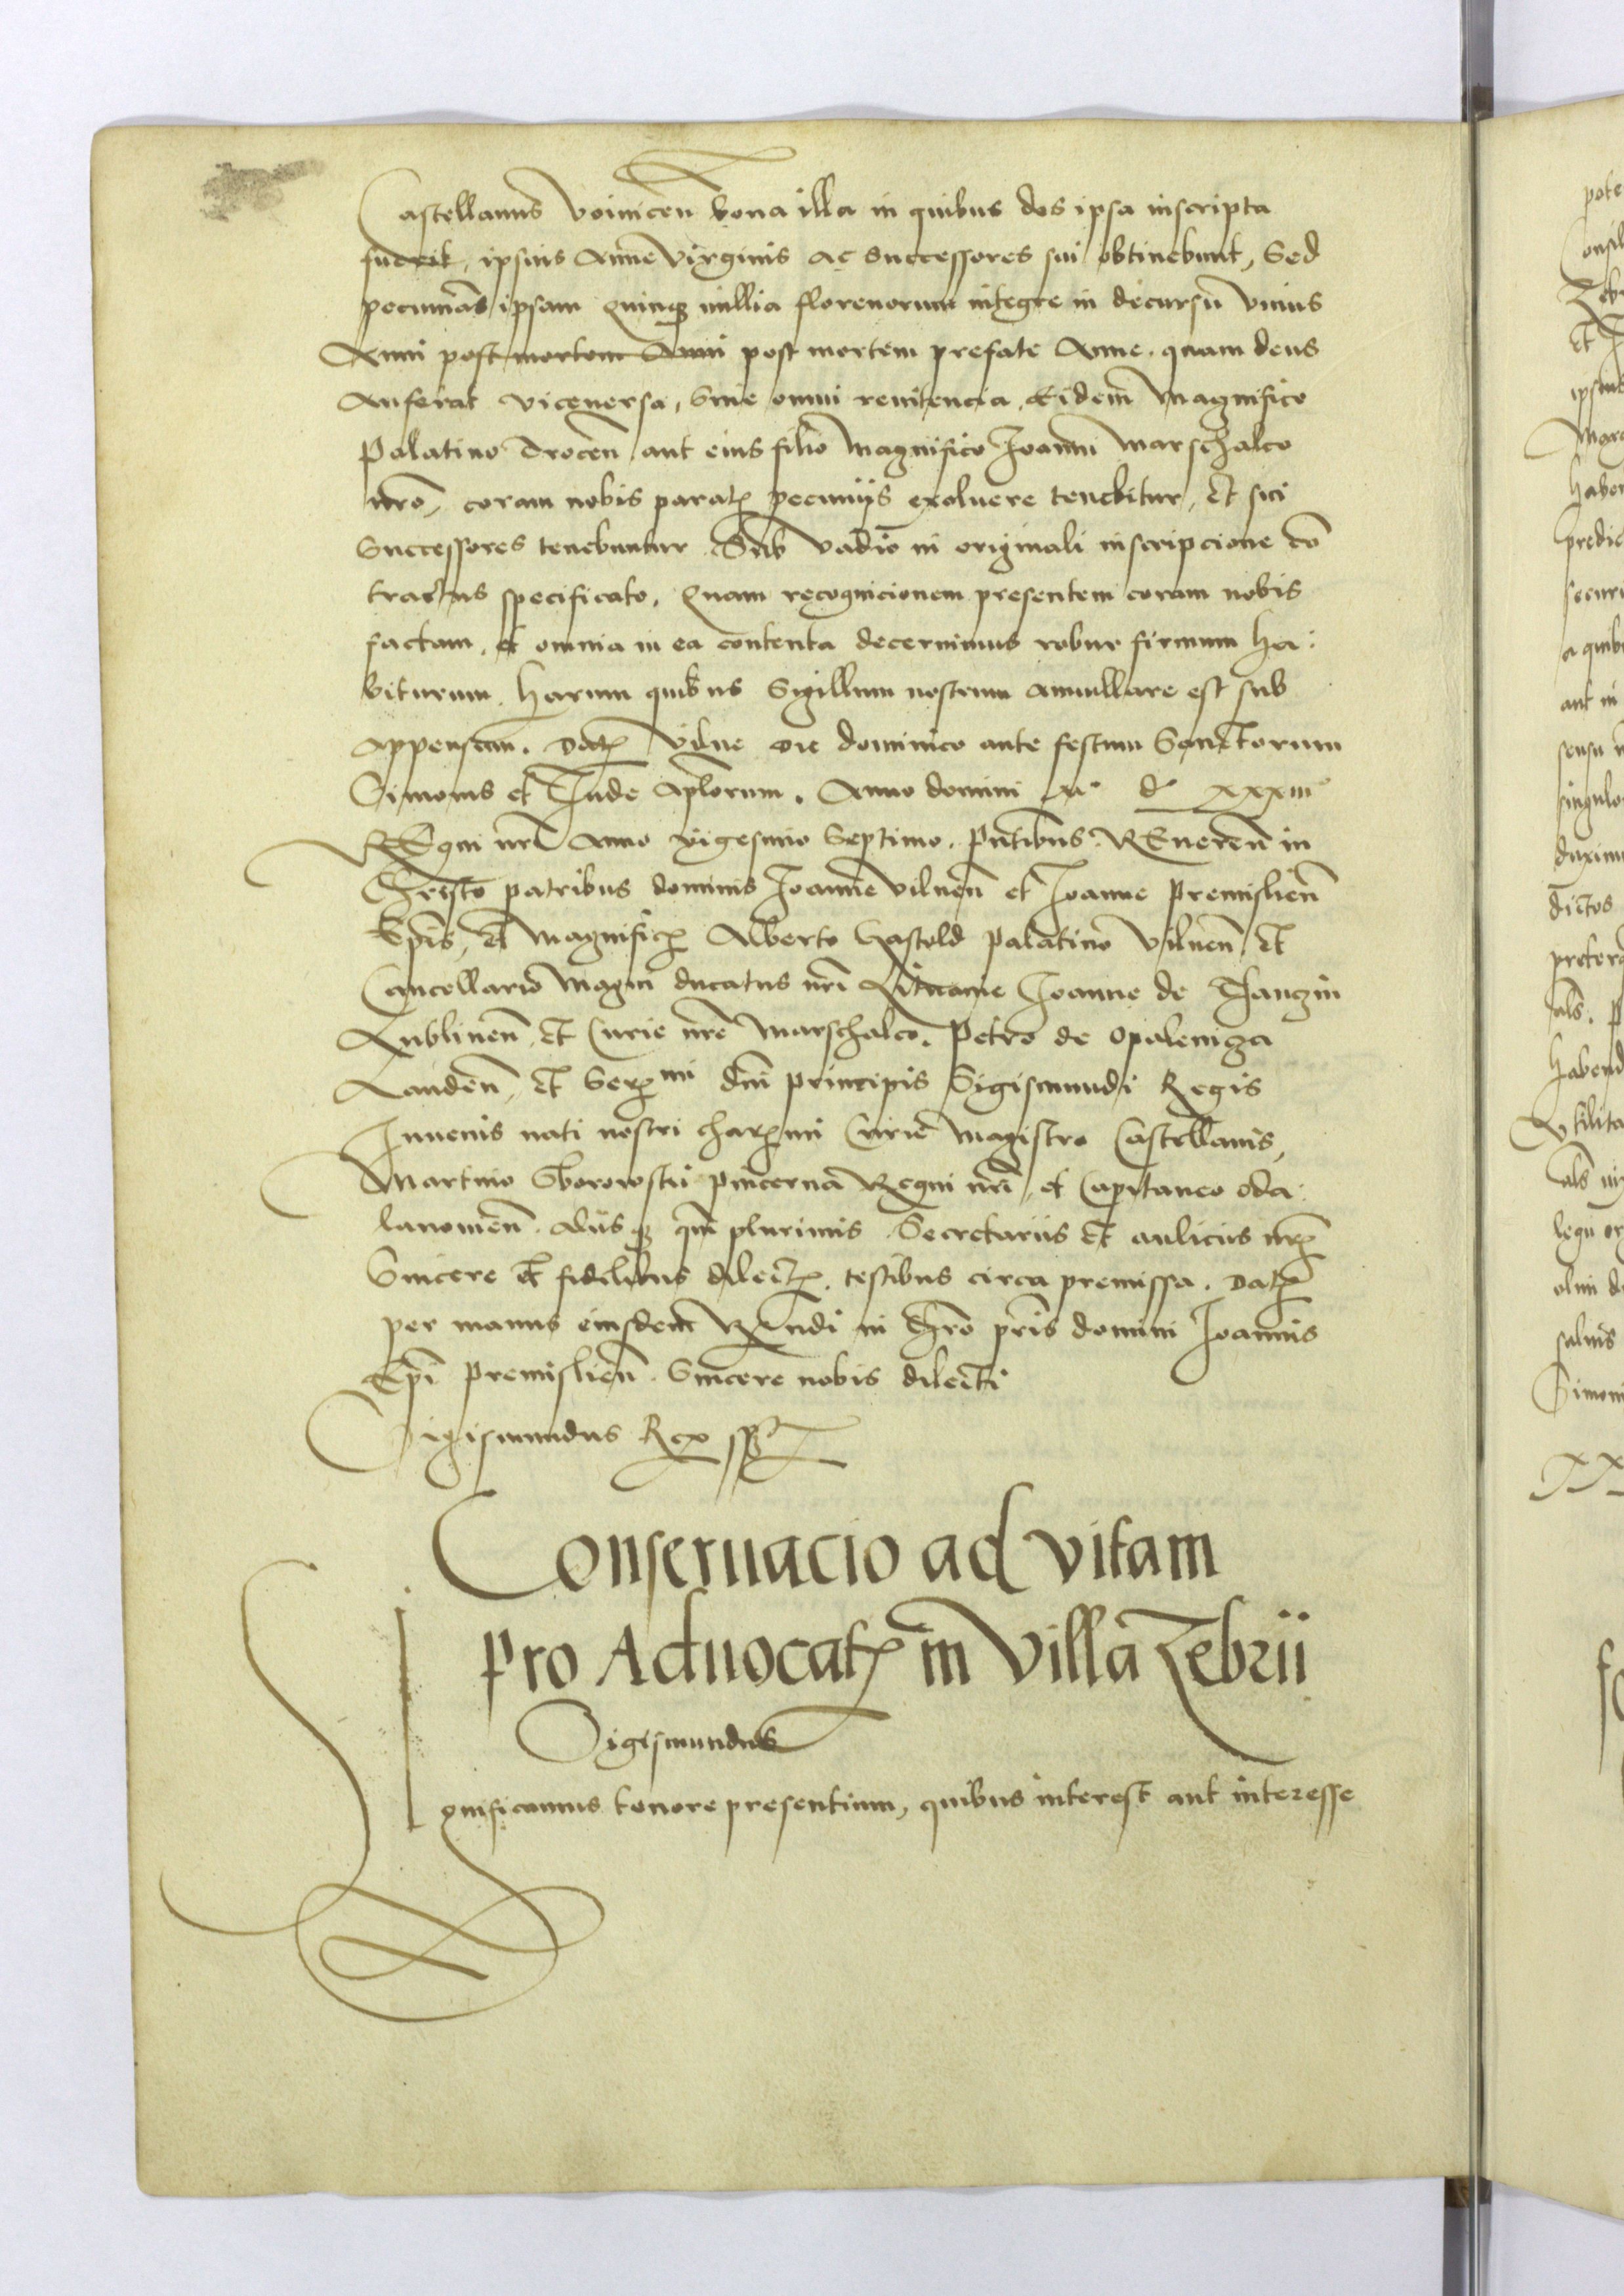 Castellanus Voinicen̄ bona illa in quibus dos ipsa inscripta
fuerit, ipsius Anne virginis ac Successores sui obtinebunt, Sed
pecuniam ipsam Quinq; millia florenorum integre in decursu vnius
Anni post mortem Anni post mortem prefate Anne, quam deus
Auferat viceversa, Sine omni renitencia, Eidem Magnifico
Palatino Trocen̄ aut eius filio Magnifico Joanni Marschalco
nr̄o, coram nobis paratꝭ pecuniis exoluere tenebitur, Et sui
Successores tenebuntur. Sub vadio in originali inscripcione cō
tractus specificato. Quam recognicionem presentem coram nobis
factam, et omnia in ea contenta decernimus robur firmum ha:
biturum. Harum quibus Sigillum nostrum annullare est sub
appensum. Datꝭ Vilne die dominico ante festum Sanctorum
Simonis et Jude Ap̄lorum. Anno domini Mº dº xxxiiiº
REgni nr̄i Anno vigesimo Septimo. Pn̄tibus REueren̄ in
Christo patribus dominis Joanne Vilnen̄ et Joanne Premislien̄
Ep̄is, et Magnificꝭ Alberto Gastold Palatino Vilnen̄ et
Cancellario Magni ducatus nr̄i Lituanie Joanne de Thanczin
Lublinen̄ et Curie nr̄e Marschalco. Petro de Opaleniza
Landen̄, et Serꝭmi dn̄i principis Sigismundi Regis
Juuenis nati nostri charꝭmi Curie Magistro Castellanis,
Martino Sborowski pincerna Regni nr̄i, et Capitaneo Oda:
lanowien̄. Aliisq; qm̄ plurimis Secretariis et aulicis nr̄ꝭ
Sincere et fidelibus dilectꝭ, testibus circa premissa. Datꝭ
per manus eiusdem Rn̄di in Chr̄o pr̄is domini Joannis
Ep̄i Premislien̄. Sincere nobis dilecti
Sigismundus Rex sst
Conseruacio ad vitam
pro Aduocatꝭ in Villa Zebrii
Sigismundus
Significamus tenore presentium, quibus interest aut interesse